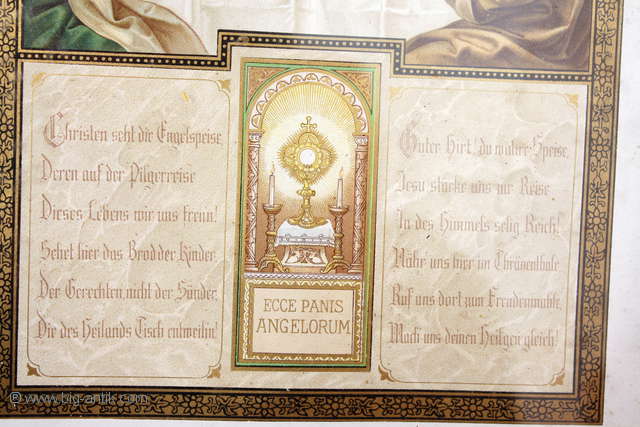 Christen seht die Engelspeise,
Deren auf der Pilgerreise
Dieses Lebens wir uns freun!
Sehet hier das Brod der Kinder
Der Gerechten, nicht der Sünder,
Die des Heilands Tisch entweihn!
ECCE PANIS
ANGELORUM
Guter Hirt! du wahre Speise,
Jesu stärke uns zur Reise
In des Himmels selig Reich!
Nähr uns hier im Thränenthale
Ruf uns dort zum Freudenmahle,
Mach uns deinen Heilgen gleich!
® www.big-antik.com